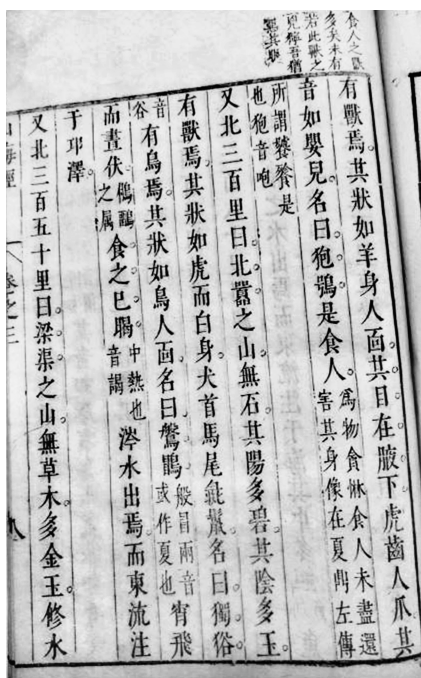 食人之獸
多矣未有
若此獸之
有獸焉其狀如羊身人面其目在腋下虎齒人爪其
音如嬰兒名曰狍鴞是食人為物貪惏食人未盡還害其身像在夏鼎左傳
所謂饕餮是也狍音咆
又北三百里曰北嚻之山無石其陽多碧其陰多玉
有獸焉其狀如虎而白身犬首馬尾彘鬣名曰獨𤞞
音俗有鳥焉其狀如烏人面名曰鷩鶥般冒兩音或作夏也宵飛
而晝伏鵂鶹之屬食之已暍中熱也音謁涔水出焉而東流注
于邛澤。
又北三百五十里曰梁渠之山無草木多金玉修水
山海經 卷之三 九